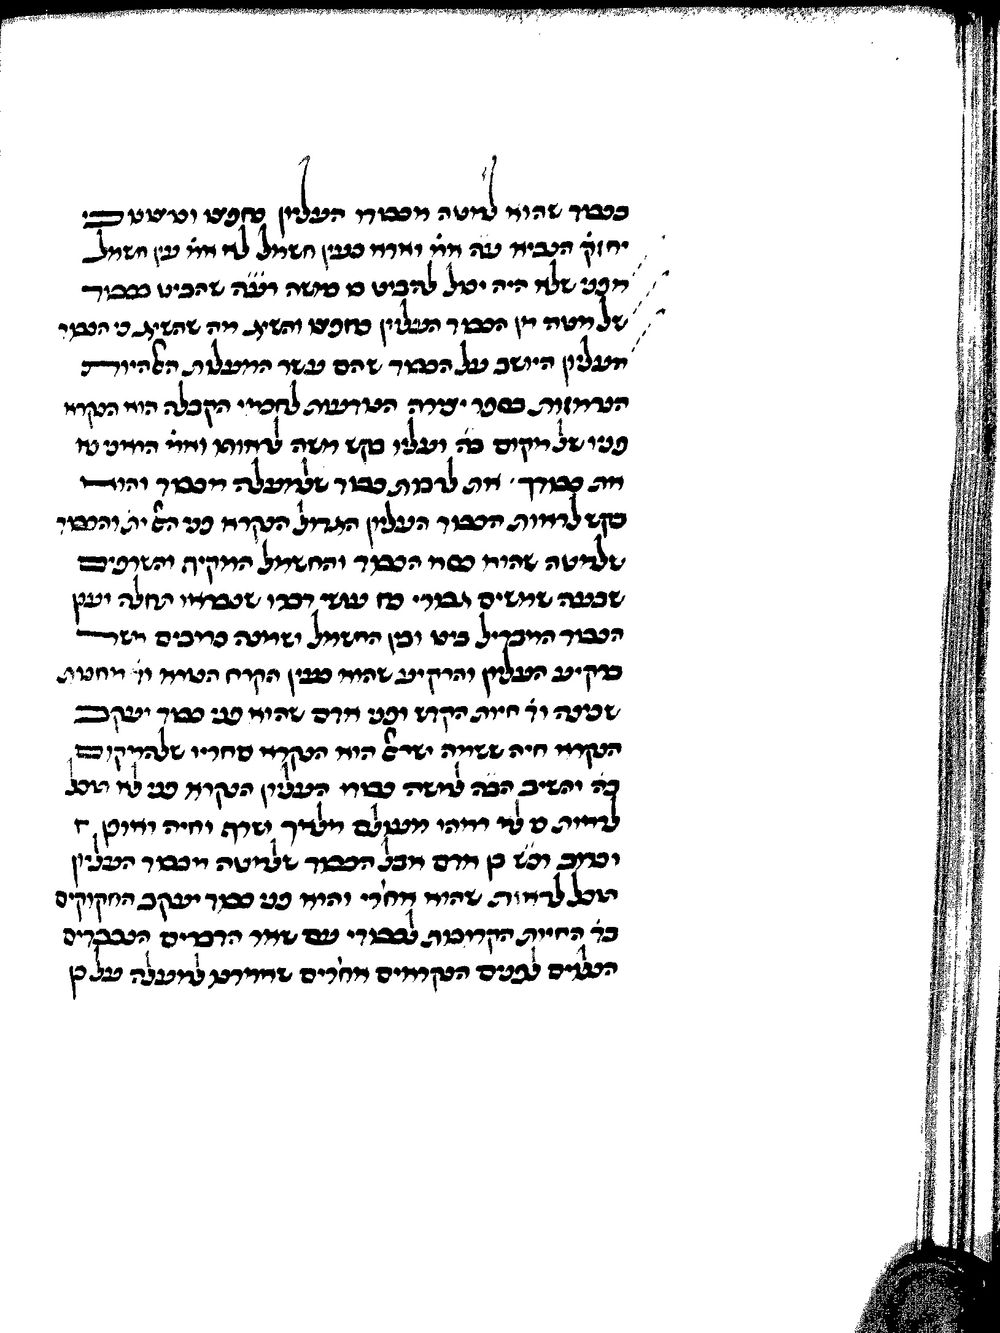 בכבוד שהוא למטה מכבודו העליון מחפש ומשוטט כי
יחזק' הנביא ע"ה אמ' וארא כעין חשמל לא אמ' עין חשמל
מפני שלא היה יכול להביט מ משה רע"ה שהביט בכבוד
של מטה מן הכבוד העליון מחפש והשיג מה שהשיג כי הכבוד
העליון היושב על הכבוד שהם עשר המעלות האלהיות
הנרמזות בספר יצירה הנודעות לחכמי הקבלה הוא הנקרא
פניו של מקום ב"ה ועליו בקש משה לראותו ואמ' הראיני נא
את כבודך את לרבות כבוד שלמעלה מכבוד והוא
בקש לראות הכבוד העליון הגדול הנקרא פני האלהית והכבוד
שלמטה שהוא כסא הכבוד והחשמל המקיף והשרפים
שבעה שמשים גבורי כח עושי דברו שנבראו תחלה וענן
הכבוד המבדיל בינו ובין החשמל ושמנה כרובים משרת
ברקיע העליון והרקיע שהוא כעין הקרח הנורא וד' מחנות
שכינה וד' חיות הקדש ופני אדם שהוא פני כבוד יעקב
הנקרא חיה ששמה ישראל הוא הנקרא מאחריו של המקום
ב"ה והשיב הב"ה למשה כבודו העליון הנקרא פני לא תוכל
לראות כי לא יראהו מעולם מלאך ושרף וחיה ואופן
וכרוב וכ"ש בן אדם אבל הכבוד שלמטה מכבוד העליון
תוכל לראות שהוא אחרי והוא פני כבוד יעקב החקוקים
בד' החיות הקרובות לכבודי עם שאר הדברים הנכבדים
הנגלים לפנים הנקראים אחרים שאמרנו למעלה על כן